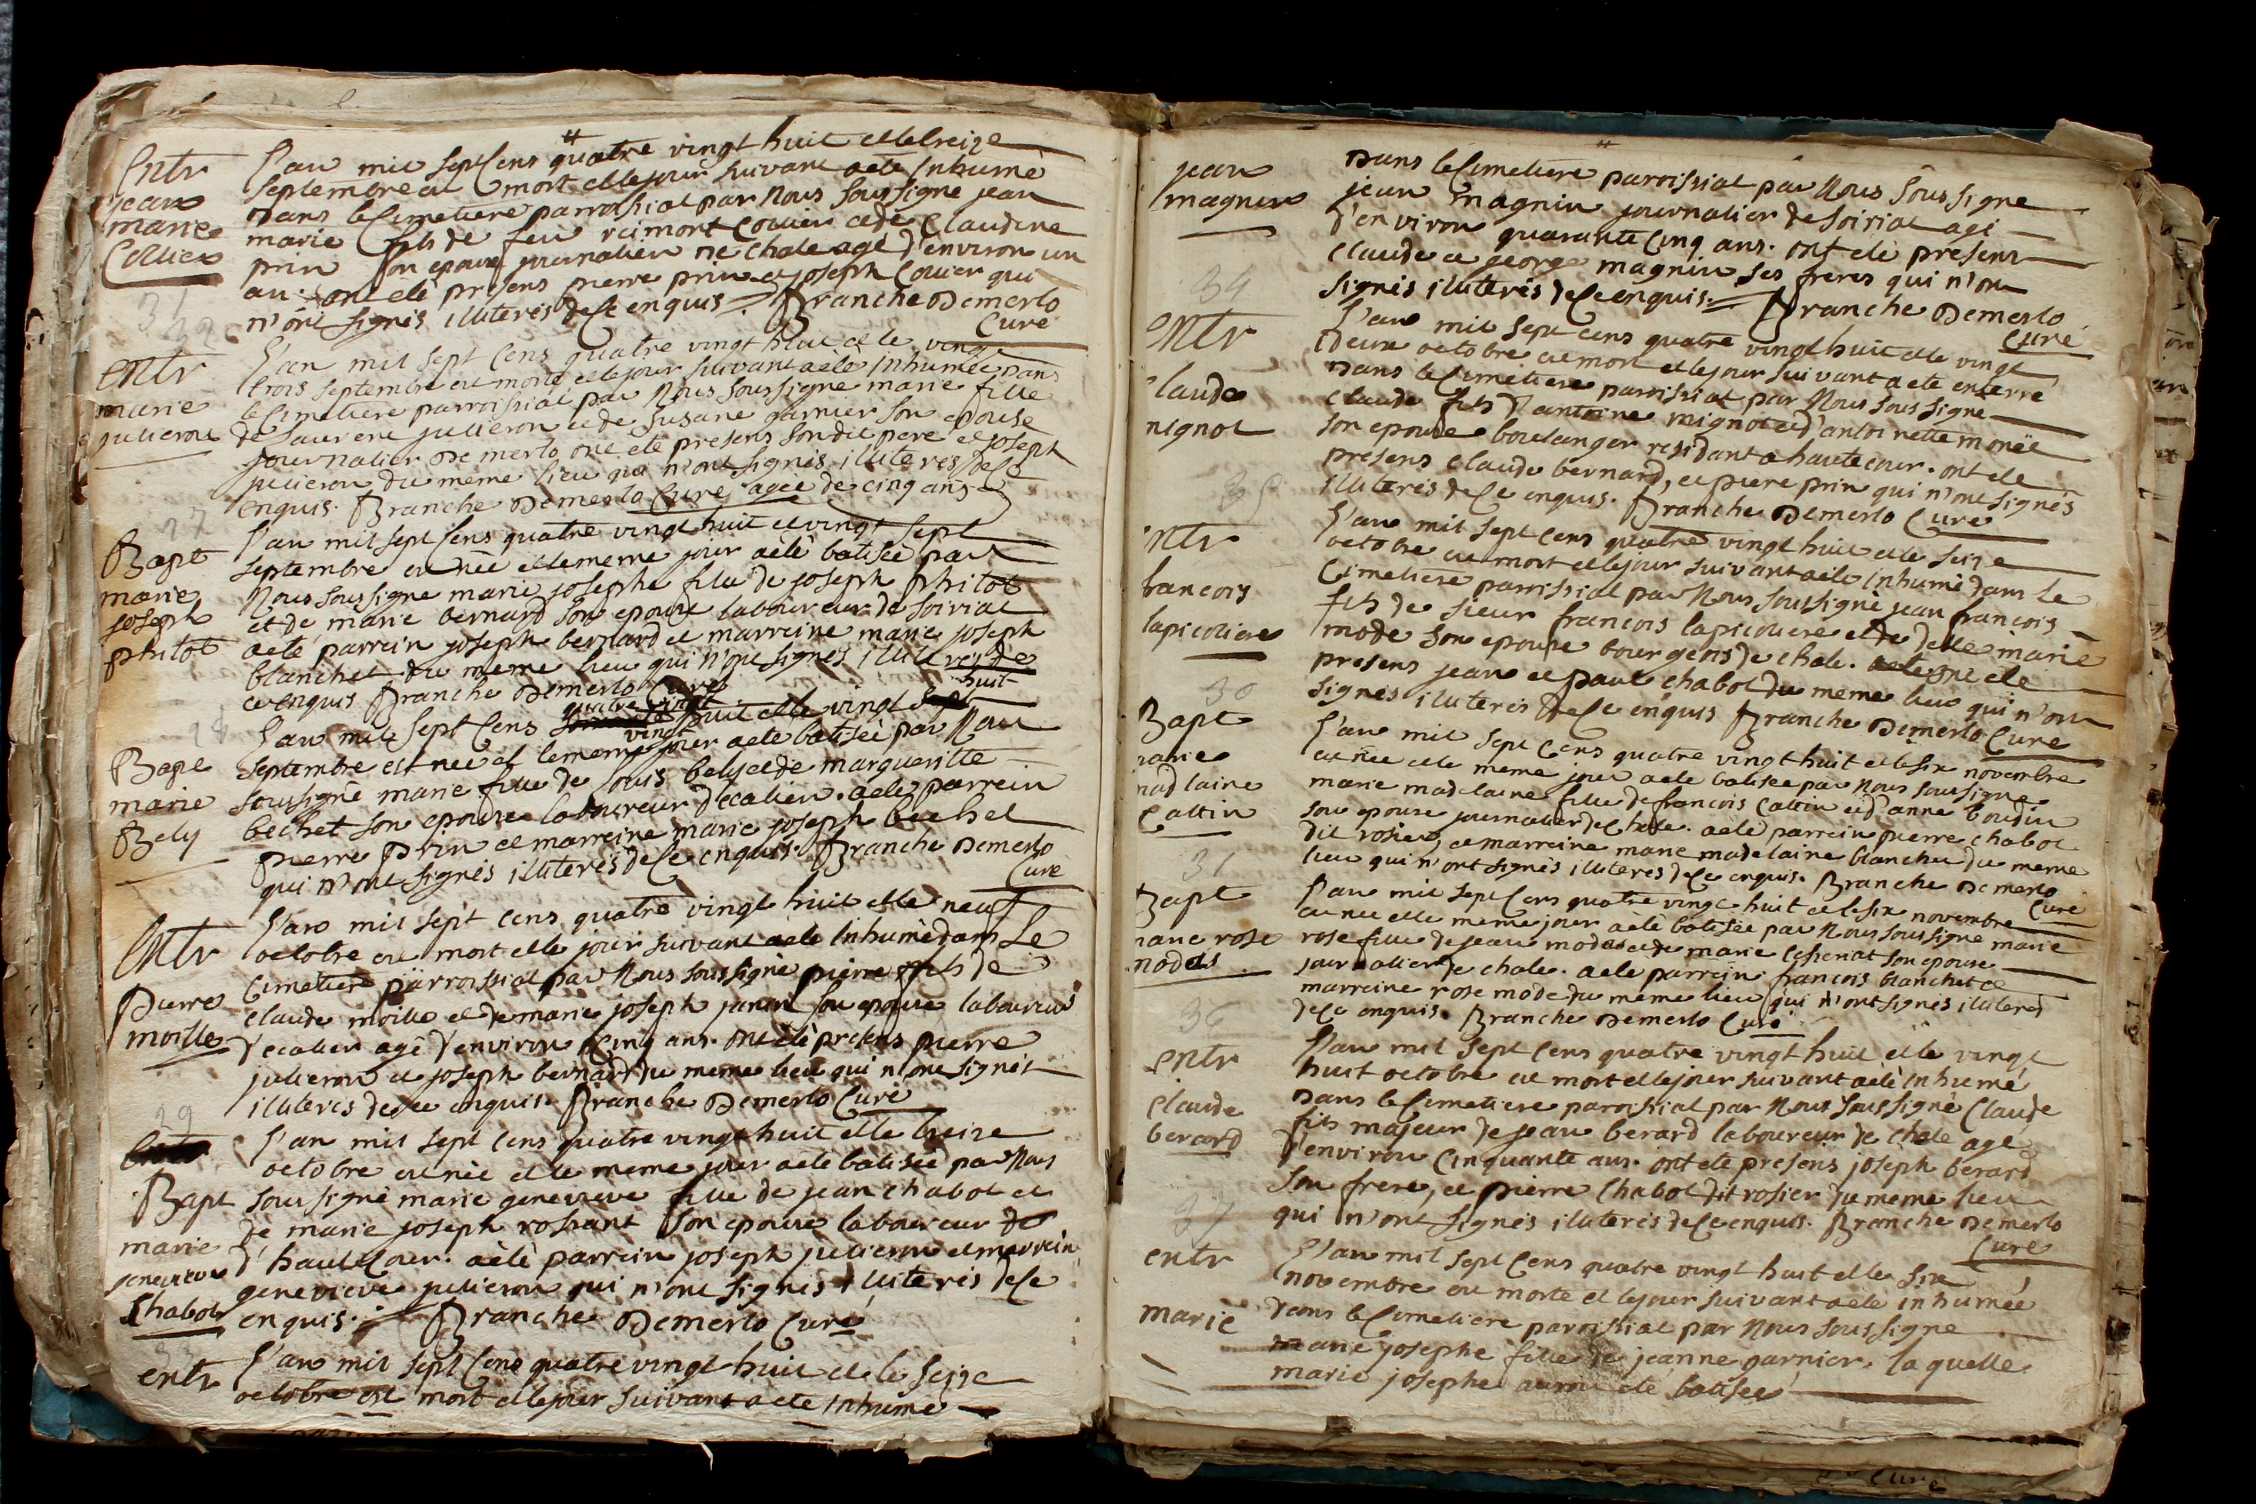 Entr
jean
marie
Cottier
L'an mil sept Cens quatre vingt huit et le treize
septembre est mort et le jour suivant a ete Inhumé
Dans le Cimetiere parroissial par Nous soussigne jean
marie fils de feu reimont Cottier et de Claudine
prin son epouse journalier de Chale agé d'environ un
an. ont eté présens pierre prin et joseph Cottier qui
n'ont signés illiteres de ce enquis. Branche Demerlo
Curé
Entr
marie
julieron
L'an mil sept Cens quatre vingt huit et le vingt
trois septembre est morte et le jour suivant a été inhumée Dans
le Cimetiere parroissial par Nous soussigne marie fille
de Laurent julieron et de Susane garnier son epouse
journalier Demerlo ont eté presens son dit pere et joseph
julieron du meme lieu qui n'ont signés illiteres de ce
enquis. Branche Demerlo Curé agée de cinq ans
27
Bapt
marie
joseph
philot
L'an mil sept Cens quatre vingt huit et vingt sept
septembre est née et le meme jour a été batisée par
Nous soussigne marie josephe fille de joseph philot
et de marie bernard son epouse laboureur de soiriat
a eté parrein joseph bernard et marreine marie joseph
blanchet du meme lieu qui n'ont signés illiteres de
ce enquis Branche Demerlo Curé
28
Bapt
marie
Bely
L'an mil sept Cens quatre vingt huit et le vingt huit
septembre est née et le meme jour a eté batisée par Nous
soussigné marie fille de Louis bely et de margueritte
bechet son epouse laboureur d'ecalier. a eté parrein
pierre prin et marreine marie joseph bechet
qui n'ont signés illiterés de ce enquis. Branche Demerlo
Curé
Entr
pierre
moille
L'an mil sept cens quatre vingt huit et le neuf
octobre est mort et le jour suivant a eté Inhumé dans Le
Cimetiere parroissial par Nous soussigné pierre fils de
claude moille et de marie joseph janin son epouse laboureur
d'ecalier agé d'environ Cinq ans. ont été présens pierre
julieron et joseph bernard du meme lieu qui n'ont signés
illiterés de ce enquis. Branche Demerlo Curé
29
Bapt
marie
genevieve
Chabot
L'an mil sept Cens quatre vingt huit et le treize
octobre est née et le meme jour a eté batisée par Nous
soussigné marie genevieve fille de jean chabot et
de marie joseph rossant son epouse laboureur de
d'hautecour. a été parrein joseph julieron et marrein
genevieve julieron qui n'ont signés illiterés de ce
enquis. Branche Demerlo Curé
entr
L'an mil sept Cens quatre vingt huit et le seize
octobre est mort et le jour suivant a ete inhumé
jean
magnin
Dans le Cimetiere parroissial par Nous Soussigne
jean magnin journalier de soiriat agé
d'environ quarante Cinq ans. ont eté presens
claude et george magnin ses freres qui n'ont
signés illiterés de ce enquis. Branche Demerlo
Curé
34
entr
claude
mignot
L'an mil sept cens quatre vingt huit et le vingt
deux octobre est mort et le jour suivant a ete enterré
Dans le Cimetiere parroissial par Nous soussigné
claude fils d'antoine mignot et d'antoinette monël
son epouse boulanger residant a hautecour. ont eté
presens claude bernard, et pierre prin qui n'ont signés
illiterés de ce enquis. Branche Demerlo Curé
35
entr
francois
lapicoliere
L'an mil sept cens quatre vingt huit et le seize
octobre est mort et le jour suivant a eté Inhumé dans Le
Cimetiere parroissial par Nous soussigné jean francois
fils de sieur francois lapicoliere et de delle marie
mode son epouse bourgeois de chale. ont eté
presens jean et paul chabot du meme lieu qui n'ont
signés illiterés de ce enquis Branche Demerlo Curé
30
Bapt
marie
madlaine
Cattin
L'an mil sept Cens quatre vingt huit et le six novembre
est née et le meme jour a eté batisée par Nous soussigne
marie madelaine fille de francois Cattin et d'anne boudin
son epouse journalier de Chale. a eté parrein pierre chabot
dit rosier, et marreine marie madelaine blanchet du meme
lieu qui n'ont signés illiteres de ce enquis. Branche Demerlo
Curé
31
Bapt
marie rose
modas
L'an mil sept Cens quatre vingt huit et le six novembre
est née et le meme jour a été batisée par Nous soussigne marie
rose fille de jean modas et de marie son epouse
journalier de chale. a eté parrein francois blanchet et
marreine rose mode du meme lieu qui n'ont signés illiterés
de ce enquis. Branche Demerlo Curé
36
entr
Claude
berard
L'an mil sept Cens quatre vingt huit et le vingt
huit octobre est mort et le jour suivant a été inhumé
Dans le Cimetiere parroissial par Nous soussigné Claude
fils majeur de jean berard laboureur de chale agé
d'environ Cinquante ans. ont ete presens joseph berard
son frere, et pierre Chabot dit rosier du meme lieu
qui n'ont signés illiterés de ce enquis. Branche Demerlo
Curé
37
entr
marie
L'an mil sept Cens quatre vingt huit et le six
novembre est morte et le jour suivant a eté inhumée
dans le Cimetiere parroissial par Nous soussigne
marie josephe fille de jeanne garnier, la quelle
marie josephe eté batisée
Curé